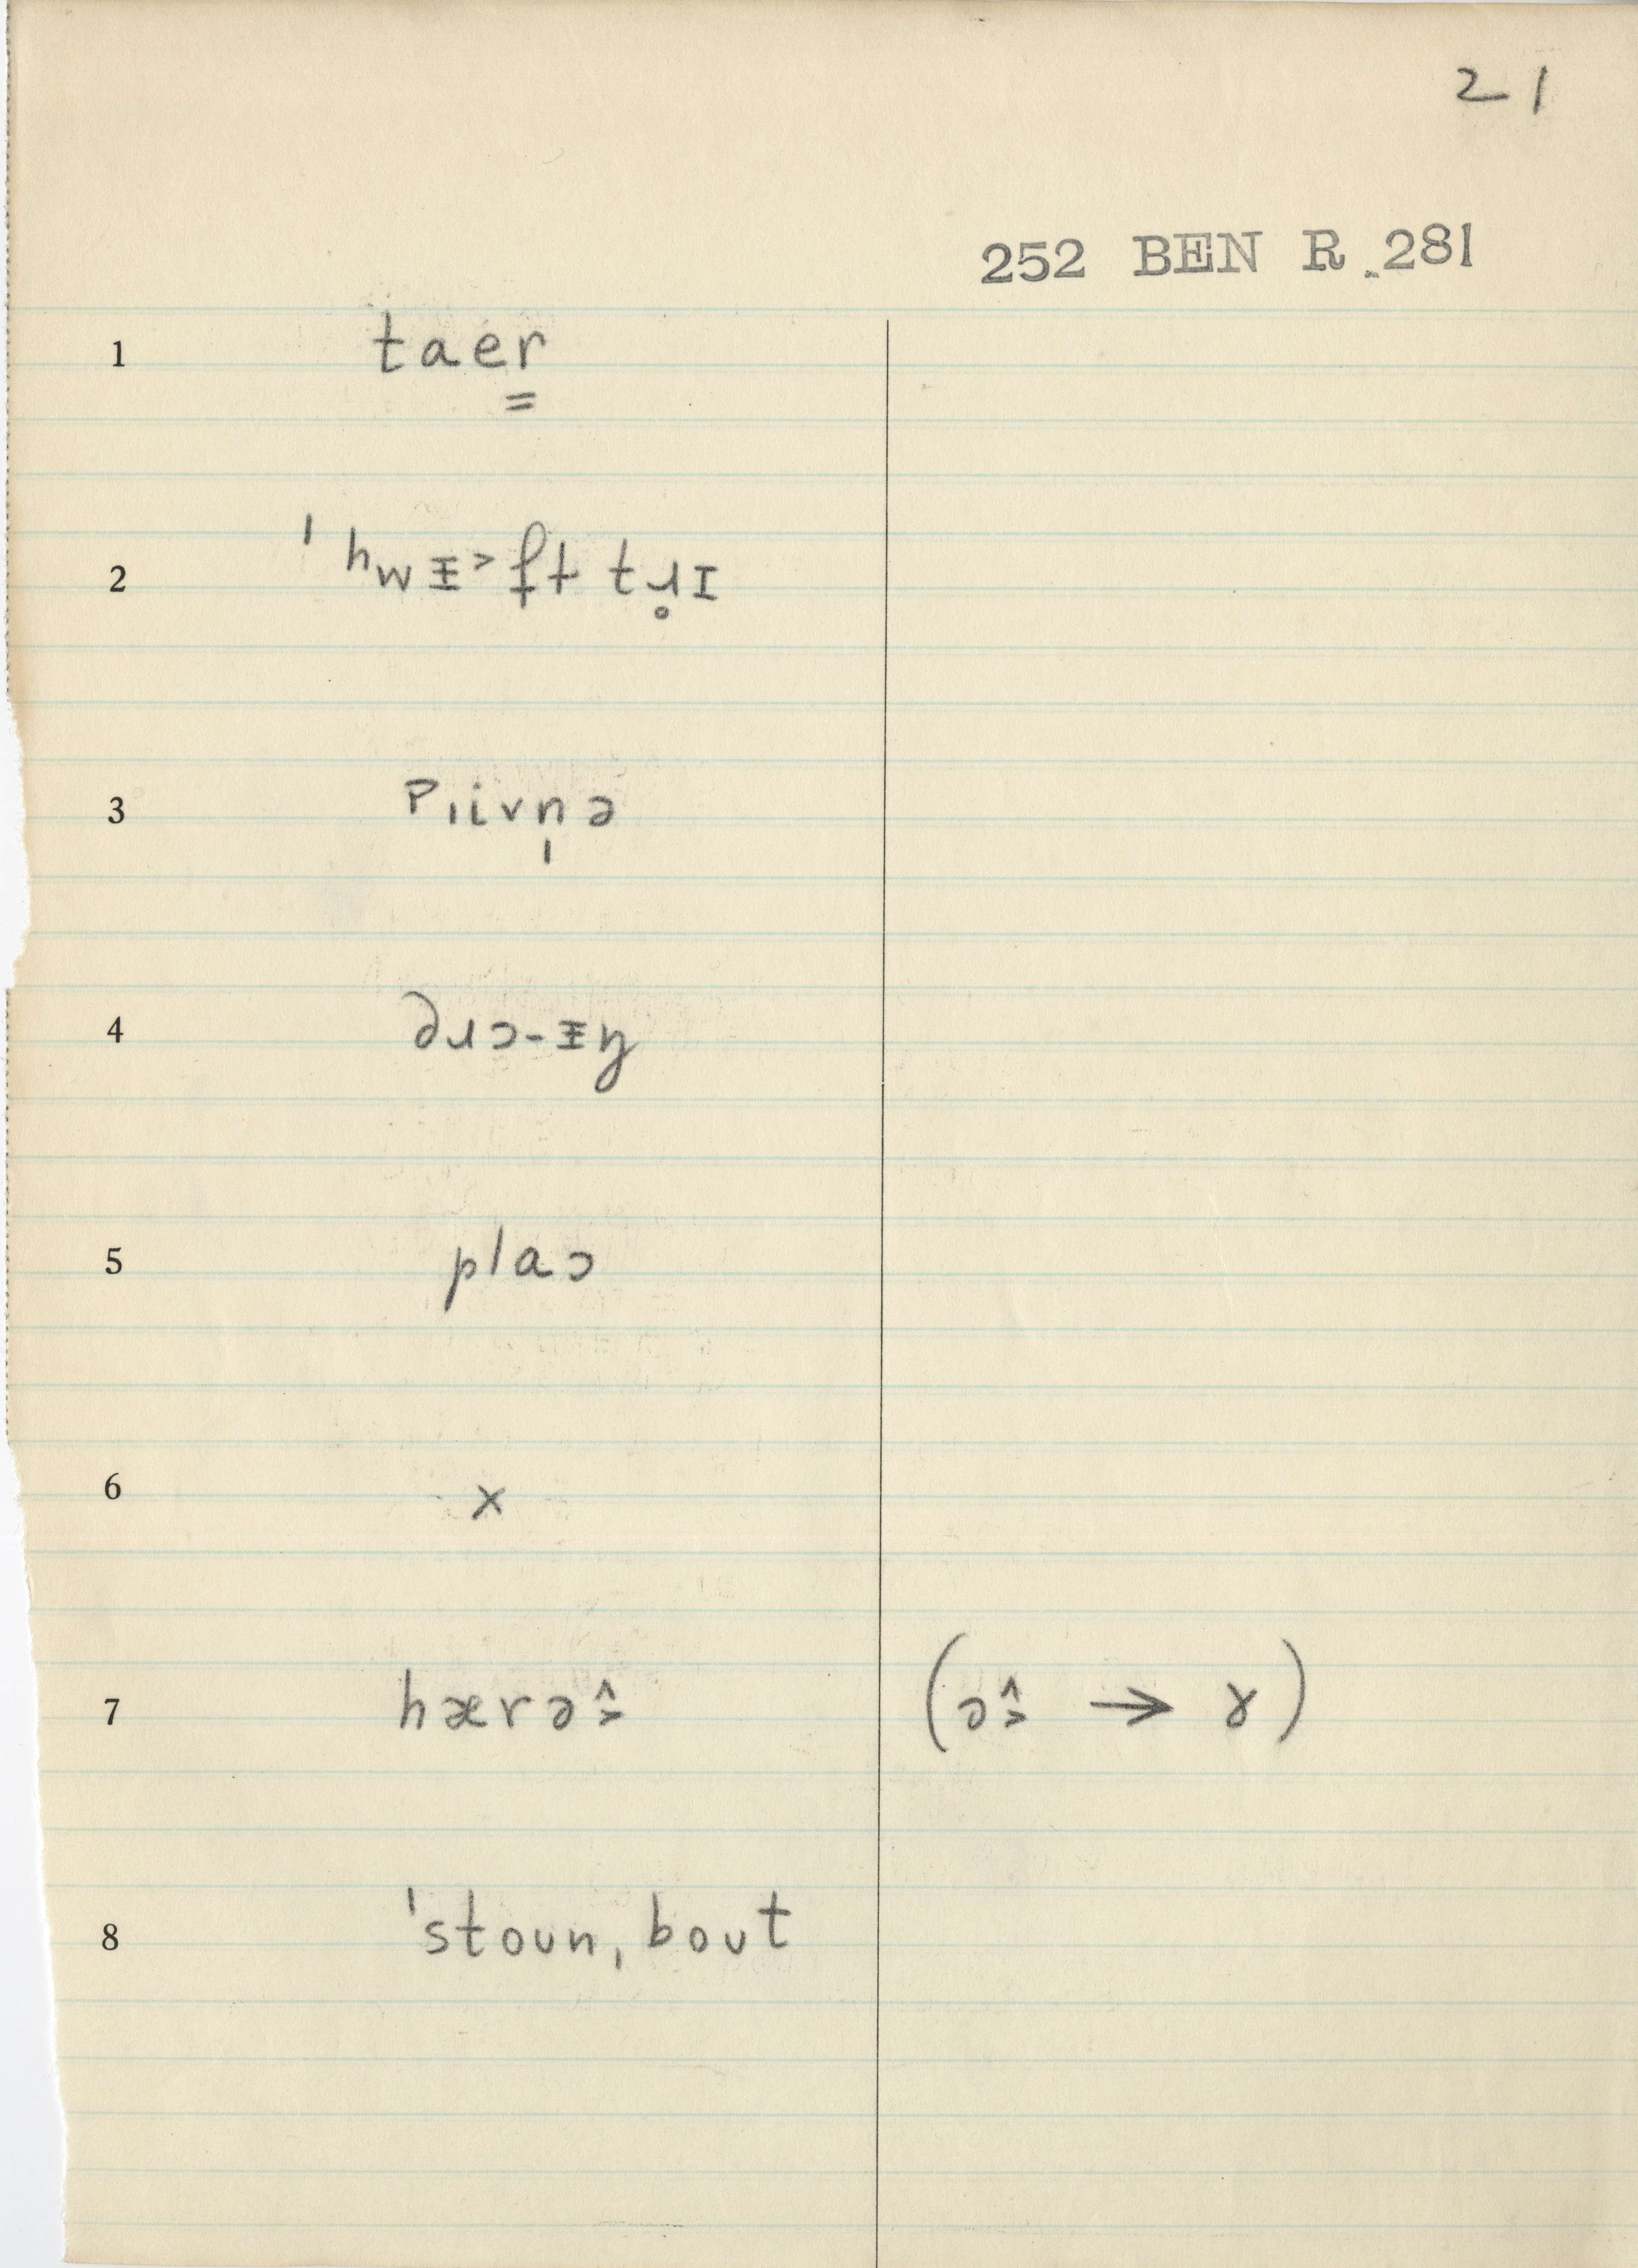 21
252 BEN R 281
1 taer̳
2 ˈhwᵻ˃ft tɹ̥ɪ
3 pıivn̩ə
4 ðɹɔ-ᵻŋ
5 plaɔ
6 x
7 hærə˄˃ (ə˄˃ → ɤ)
8 ˈstoun, bout